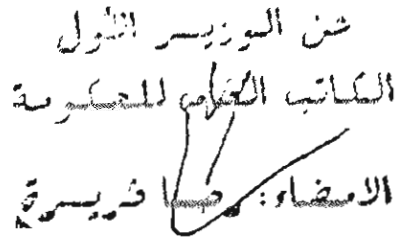 عن الوزير الأول
الكاتب العام للحكومة
الامضاء: رضا قريرة